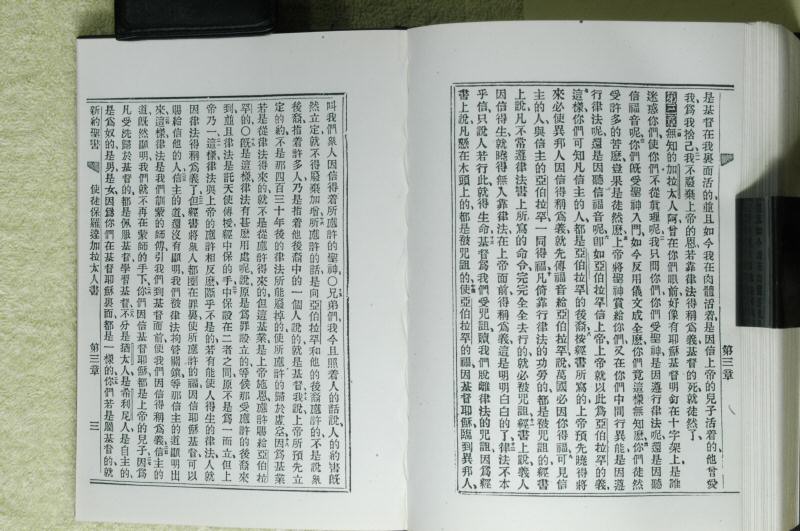 是基督在我裏面活的、並且如今我在肉體活着、是因信上帝的兒子活着的、他曾愛
我、爲我捨己、我不廢棄上帝的恩、若靠律法得稱爲義、基督的死就徒然了、
第三章 無知的加拉太人阿、曾在你們眼前、好像有耶穌基督明釘在十字架上、是誰
迷惑你們、使你們不從眞理呢、我只問你們、你們受聖神、是因遵行律法呢、還是因聽
信福音呢、你們既受聖神入門、如今反用儀文成全麽、你們竟這樣無知麽、你們徒然
受許多的苦麽、豈果是徒然麽、上帝將聖神賞給你們、又在你們中間行異能、是因遵
行律法呢、還是因聽信福音呢、卽如亞伯拉罕信上帝、上帝就以此爲亞伯拉罕的義、
這樣你們可知凡信主的人、都是亞伯拉罕的後裔、按經書所寫的、上帝預先曉得將
來必使異邦人因信得稱爲義、就先傳福音給亞伯拉罕、說、萬國必因你得福、可見信
主的人與信主的亞伯拉罕一同得福、凡倚靠行律法的功勞的、都是被咒詛的、經書
上說、凡不常遵律法書上所寫的命令完完全全去行的、就必被咒詛、經書上說、義人
因信得生、就曉得無人靠律法在上帝面前得稱爲義、這是明明白白的了、律法不本
乎信、只說人若行此就得生命、基督爲我們受咒詛、贖我們脫離律法的咒詛、因爲經
書上說、凡懸在木頭上的、都是被咒詛的、使亞伯拉罕的福、因基督耶穌臨到異邦人、
第三章
叫我們衆人因信得着所應許的聖神〇兄弟們、我今且照着人的話說、人的約書既
然立定、就不得廢棄加增、所應許的話、是向亞伯拉罕和他的後裔應許的、不是說衆
後裔、指着許多人、乃是指着他後裔中的一個人說的、就是基督、我說上帝所預先立
定的約、不是那四百三十年後的律法所能廢掉的、使所應許的歸於虛空、因爲基業
若是從律法得來的、就不是從應許得來的、但這基業是上帝施恩應許賜給亞伯拉
罕的〇既是這樣、律法有甚麽用處呢、說原是爲罪設立的、等候那受應許的後裔來
到、並且律法是託天使傳授、經中保的手、中保設在二者之間、原不是爲一而立、但上
帝乃一、這樣、律法與上帝的應許相反麽、斷乎不是的、若有能使人得生的律法、人就
因律法得稱爲義了、但經書將衆人都圈在罪裏、使所應許的福因信耶穌基督可以
賜給信他的人、信主的道還沒有顯明、我們被律法拘管關鎖、等那信主的道顯明出
來、這樣律法是我們訓蒙的師傅、引我們到基督面前、使我們因信得稱爲義、信主的
道既然顯明、我們就不再在蒙師的手下、你們因信基督耶穌都是上帝的兒子、因爲
凡受洗歸於基督的、都是佩服基督學習基督、不分是猶太人、是希利尼人、是自主的、
是爲奴的、是男、是女、因爲你們在基督耶穌裏面都是一樣的、你們若是屬基督的、就
新約聖書 使徒保羅達加拉太人書 第三章 三